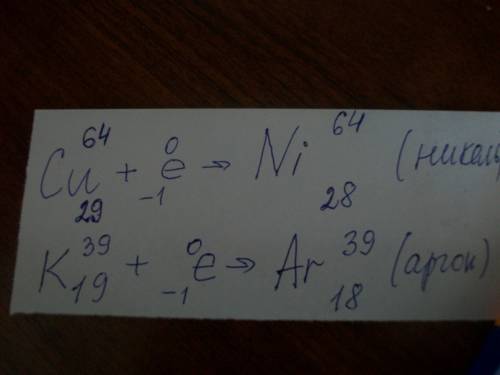 Cu⁶⁴₂₉ + ⁰₋₁e → Ni⁶⁴₂₈ (никель
K³⁹₁₉ + ⁰₋₁e → Ar³⁹₁₈ (аргон)